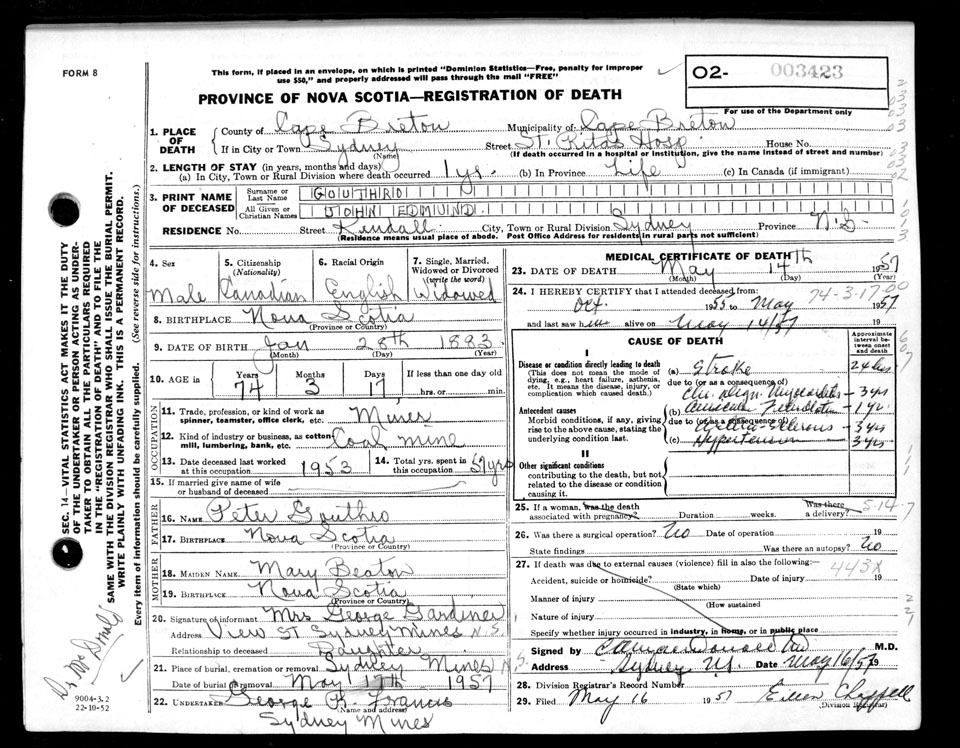 FORM 8
This form, if placed in an envelope, on which is printed "Dominion Statistics—Free, penalty for improper
use $50," and properly addressed will pass through the mail "FREE"
O2- 003423
For use of the Department only
PROVINCE OF NOVA SCOTIA—REGISTRATION OF DEATH
SEC. 14—VITAL STATISTICS ACT MAKES IT THE DUTY
OF THE UNDERTAKER OR PERSON ACTING AS UNDER-
TAKER TO OBTAIN ALL THE PARTICULARS REQUIRED
IN THE "REGISTRATION OF DEATH" AND TO FILE THE
SAME WITH THE DIVISION REGISTRAR WHO SHALL ISSUE THE BURIAL PERMIT.
WRITE PLAINLY WITH UNFADING INK. THIS IS A PERMANENT RECORD.
Every item of information should be carefully supplied. (See reverse side for instructions.)
1. PLACE OF DEATH
County of Cape Breton Municipality of Cape Breton
If in City or Town Sydney Street St. Ritas Hosp House No.
(Name) (If death occurred in a hospital or institution, give the name instead of street and number)
2. LENGTH OF STAY (in years, months and days)
(a) In City, Town or Rural Division where death occurred 1 yr. (b) In Province Life (c) In Canada (if immigrant)
3. PRINT NAME OF DECEASED
Surname or Last Name GOUTHRO
All Given or Christian Names JOHN EDMUND.
RESIDENCE No. Street Kendall City, Town or Rural Division Sydney Province N.S
(Residence means usual place of abode. Post Office Address for residents in rural parts not sufficient)
4. Sex Male
5. Citizenship (Nationality) Canadian
6. Racial Origin English
7. Single, Married, Widowed or Divorced (write the word) Widowed
8. BIRTHPLACE Nova Scotia
(Province or Country)
9. DATE OF BIRTH Jan 28th 1883
(Month) (Day) (Year)
10. AGE in Years 74 Months 3 Days 17 If less than one day old
hrs. or min.
OCCUPATION
11. Trade, profession, or kind of work as spinner, teamster, office clerk, etc. Miner
12. Kind of industry or business, as cotton mill, lumbering, bank, etc. Coal mine
13. Date deceased last worked at this occupation 1953
14. Total yrs. spent in this occupation 57 yrs
15. If married give name of wife or husband of deceased
FATHER
16. NAME Peter Gouthro
17. BIRTHPLACE Nova Scotia
(Province or Country)
MOTHER
18. MAIDEN NAME Mary Beaton
19. BIRTHPLACE Nova Scotia
(Province or Country)
20. Signature of informant Mrs George Gardiner
Address View ST Sydney Mines N.S.
Relationship to deceased Daughter
21. Place of burial, cremation or removal Sydney Mines N.S.
Date of burial or removal May 17th 1957
22. UNDERTAKER George R. Francis
(Name and address)
Sydney Mines
MEDICAL CERTIFICATE OF DEATH
23. DATE OF DEATH May 14th 1957
(Month) (Day)
24. I HEREBY CERTIFY that I attended deceased from:
74-3-17-00
Oct. 1955 to May 1957
and last saw him alive on May 14/57 19
CAUSE OF DEATH
Approximate interval between onset and death
I
Disease or condition directly leading to death
(This does not mean the mode of dying, e.g., heart failure, asthenia, etc. It means the disease, injury, or complication which caused death.)
(a) Stroke 24 hrs.
due to (or as a consequence of)
Chr. degn. Myocarditis - 3 yrs
Antecedent causes
Morbid conditions, if any, giving rise to the above cause, stating the underlying condition last.
(b) Auricular Fibrillation - 1 yr.
due to (or as a consequence of)
Arterio-Sclerosis - 3 yrs
(c) Hypertension 3 yrs
II
Other significant conditions
contributing to the death, but not related to the disease or condition causing it.
25. If a woman, was the death associated with pregnancy? Duration weeks. Was there a delivery?
5-14-7
26. Was there a surgical operation? No Date of operation 19
State findings Was there an autopsy? No
27. If death was due to external causes (violence) fill in also the following:
443X
Accident, suicide or homicide? Date of injury 19
(State which)
Manner of injury
(How sustained
Nature of injury
Specify whether injury occurred in industry, in home, or in public place
Signed by M.D.
Address Sydney N.S. Date May 16/57 19
28. Division Registrar's Record Number
29. Filed May 16 1957 Eileen Chappell
(Division Registrar)
Dr. McDonald
9004-3.2
22-10-52